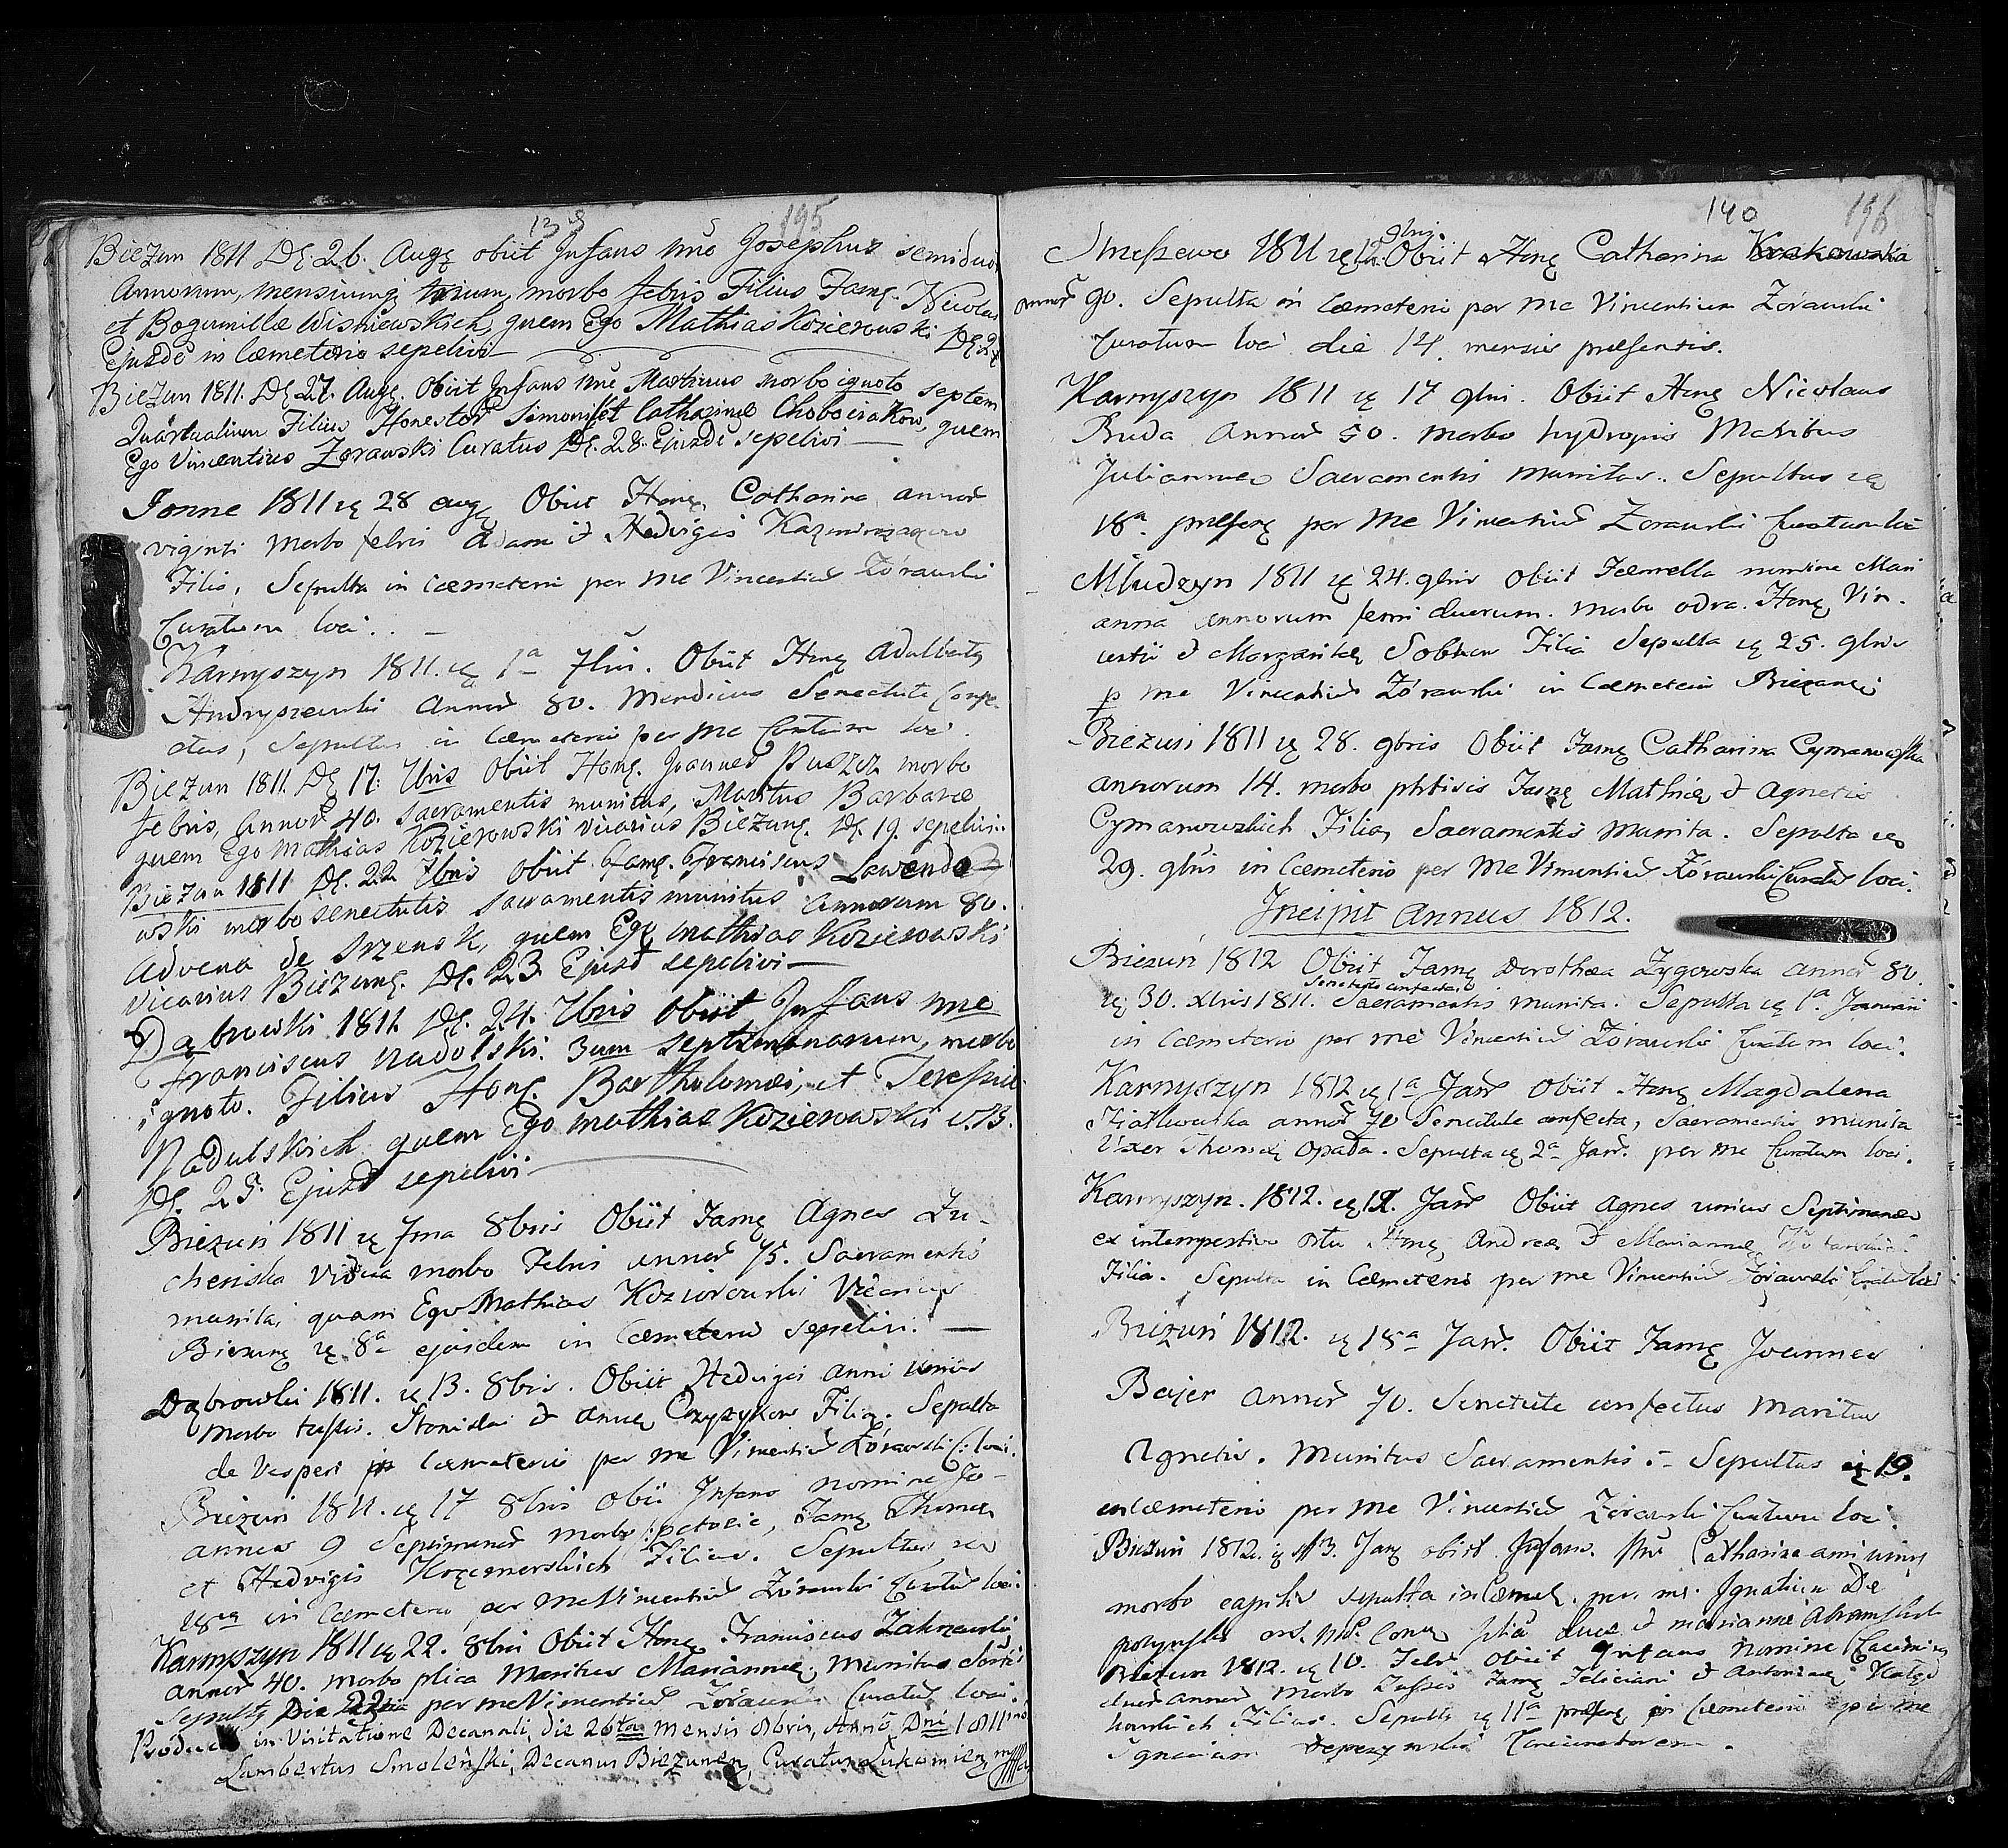 139 195
Bieżun 1811 Dę. 26. Augę obiit Infans nñe Josephus semiduor
Annorum, mensiumqę trium, morbo febris Filius Famę. Nicolai
et Bogumillæ Wisniewskich, quem Ego Mathias Kozierowski Dę 27
Ejusdē in Cæmeterio sepelivi
Bieżun 1811. Dę 27. Augę. Obiit Infans nñe Martinus morbo ignoto septem
Quartualium Filius Honestor Simonis et Catharinæ Chobocrakow, quem
Ego Vincentius Zorawski Curatus Dę. 28. Ejusdē sepelivi
Jonne 1811 ię 28 augę Obiit Honę Catharina annor
viginti morbo febri Adami et Hedvigis
Filia, Sepulta in cæmeterio per me Vincentiū Zórawski
Curatum loci.
Karnyszyn 1811. ię 1a 7bris. Obiit Honę Adalbertę
Andryszewski annor 80. Mendicus Senectute Confe-
ctus, Sepultus in Cæmeterio per me Curatum loci.
Bieżun 1811. Dę 17. 7bris Obiit Honę. Joannes Puszcz morbo
febris, annor 40. Sacramentis munitus, Maritus Barbaræ
quem Ego Mathias Kozierowski vicarius Bieżunę. Dę. 19. sepelivi..
Bieżun 1811 Dę. 22 7bris obiit famę. Franciscus Lawendo-
wski morbo senectutis sacramentis munitus annorum 80.
Advena de Srzensk, quem Ego Mathias Kozierowski
Vicarius Bieżunę. Dę. 23. Ejusd sepelivi
Dąbrowski 1811. Dę. 24. 7bris obiit Infans nñe
Franciscus Nadolski. 3um septimanarum, morbo
ignoto. Filius Honę. Bartholomæi, et Teressiæ
Nadulskich quem Ego Mathias Kozierowski V.B.
Dę. 25. Ejusd sepelivi
Bieżuń 1811 ię 7ma 8bris Obiit Famę Agnes Zu-
cheńska Vidua morbo Febris annor 75. Sacramentis
munita, quam Ego Mathias Kozierowski Vicarius
Bieżunę ię 8a ejusdem in Cæmeterio sepelivi.
Dąbrowski 1811. ię 13. 8bris. Obiit Hedvigis anni unius
morbo tussis. Stanislai et annę Czyzykow Filia. Sepulta
de Vesperi in Cæmeterio per me Vincentiū Zórawski C: loci.
Bieżuń 1811. ię 17 8bris obii Infans nomine Jo-
annes 9 Septimanar morbo Famę Thomæ
et Hedvigis Filius. Sepultus ię
18va in Cæmeterio per me Vincentiū Zórawski Curatū loci.
Karnyszyn 1811 ię 22. 8bris Obiit Honę Franciscus Zakrzewski
annor 40. morbo plica Maritus Mariannę. Munitus
Sepultę Die 22 per me Vincentiū Zórawski Curatū loci.
in Visitatione Decanali, die 26ta Mensis 8bris, Anno Dni 1811mo
Lambertus Smoleński, Decanus Bieżunen, Curatus
140 196
1811 ię 12 9bris Obiit Honę Catharina Krakowska
annor 90. Sepulta in Cæmeterio per me Vincentium Zórawski
Curatum loci die 14. mensis præsentis.
Karnyszyn 1811 ię 17 9bris. Obiit Honę Nicolaus
Buda Annor 50. morbo hydropis Maritus
Juliannæ Sacramentis munitus. Sepultus ię
18a. præsenę per me Vincentiū Zorawski Curatum loci
Młudzyn 1811 ię 24. 9bris obiit Fæmella nomine Mari
anna annorum semi duorum. morbo odra. Honę Vin-
centii et Margaritę Filia Sepulta ię 25. 9bris
p me Vincentiū Zórawski in Cæmeterio Bieżunę
Bieżuń 1811 ię 28. 9bris Obiit Famę Catharina Cymanowska
annorum 14. morbo phtisis Famę Mathię et Agnetis
Cymanowskich Filia, Sacramentis munita. Sepulta ię
29. 9bris in Cæmeterio per me Vincentiū Zórawski Curatū loci.
Incipit Annus 1812.
Bieżuń 1812 Obiit Famę Dorothea Zygowska annor 80.
Senectute confecta
ię 30. xbris 1811. Sacramentis munita. Sepulta ię 1a. Januarii
in Cæmeterio per me Vincentiū Zórawski Curatum loci.
Karnyszyn 1812 ię 1a Janr Obiit Honę Magdalena
annor 70 Senectute confecta, Sacramentis munita
Uxor Thomę Opada. Sepulta ię 2a Janr. per me Curatum loci.
Karnyszyn. 1812. ię 12. Janr Obiit Agnes unius Septimanæ
ex intempestivo ortu Honę Andreæ et Mariannę
Filia. Sepulta in Cæmeterio per me Vincentiū Zórawski Curatū loci
Bieżuń 1812. ię 18a Janr. Obiit Famę Joannes
Bajer annor 70. Senectute confectus maritus
Agnetis. Munitus Sacramentis. Sepultus ię 19.
in cæmeterio per me Vincentiū Zórawski Curatum loci.
Bieżuń 1812. ię 13. Janę obiit Infans. Catharina anni unius
morbo capitis sepulta in Cæmeę. per. me. Ignatium De
filia Lucæ et mariannæ
Bieżun 1812. ię 10. Febr Obiit Infans Nomine Casimirus
annor morbo Tussis Famę Feliciani et Antoninę
Filius. Sepultę ię 11a præsenę in Cæmeterio per me
Ignatium